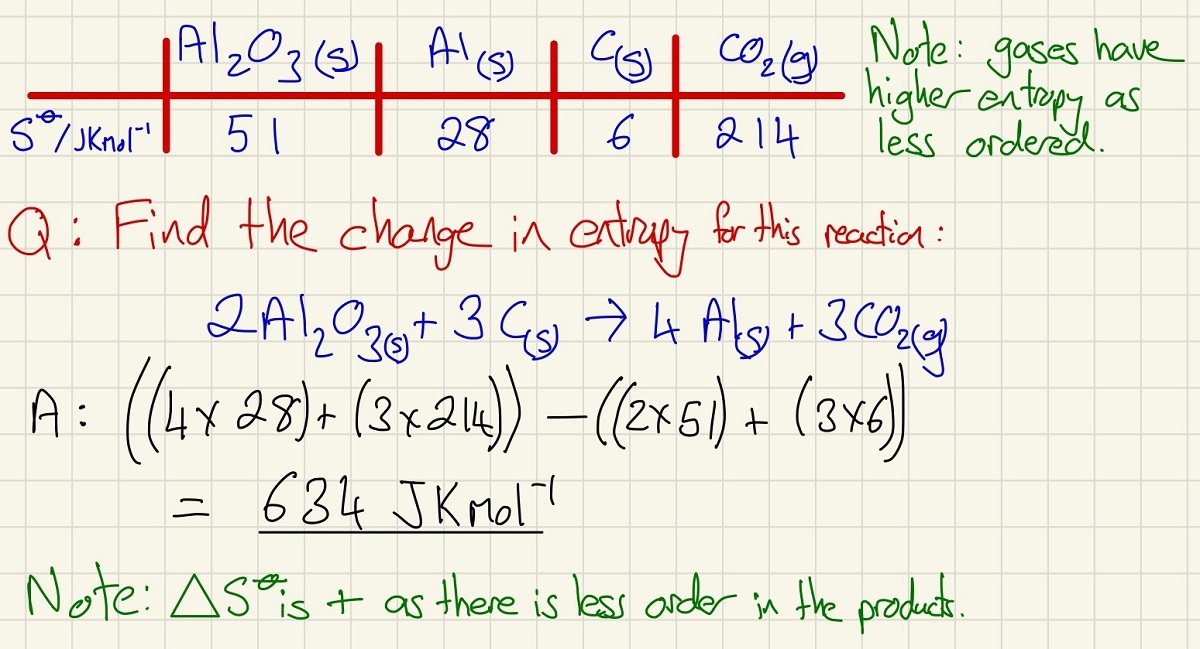 Al₂O₃(s) Al(s) C(s) CO₂(g)
S⦵/JKmol⁻¹ 51 28 6 214
Note: gases have
higher entropy as
less ordered.
Q: Find the change in entropy for this reaction:
2Al₂O₃(s) + 3C(s) → 4Al(s) + 3CO₂(g)
A: ((4x28)+(3x214))-((2x51)+(3x6))
= 634 JKmol⁻¹
Note: △S⦵ is + as there is less order in the products.